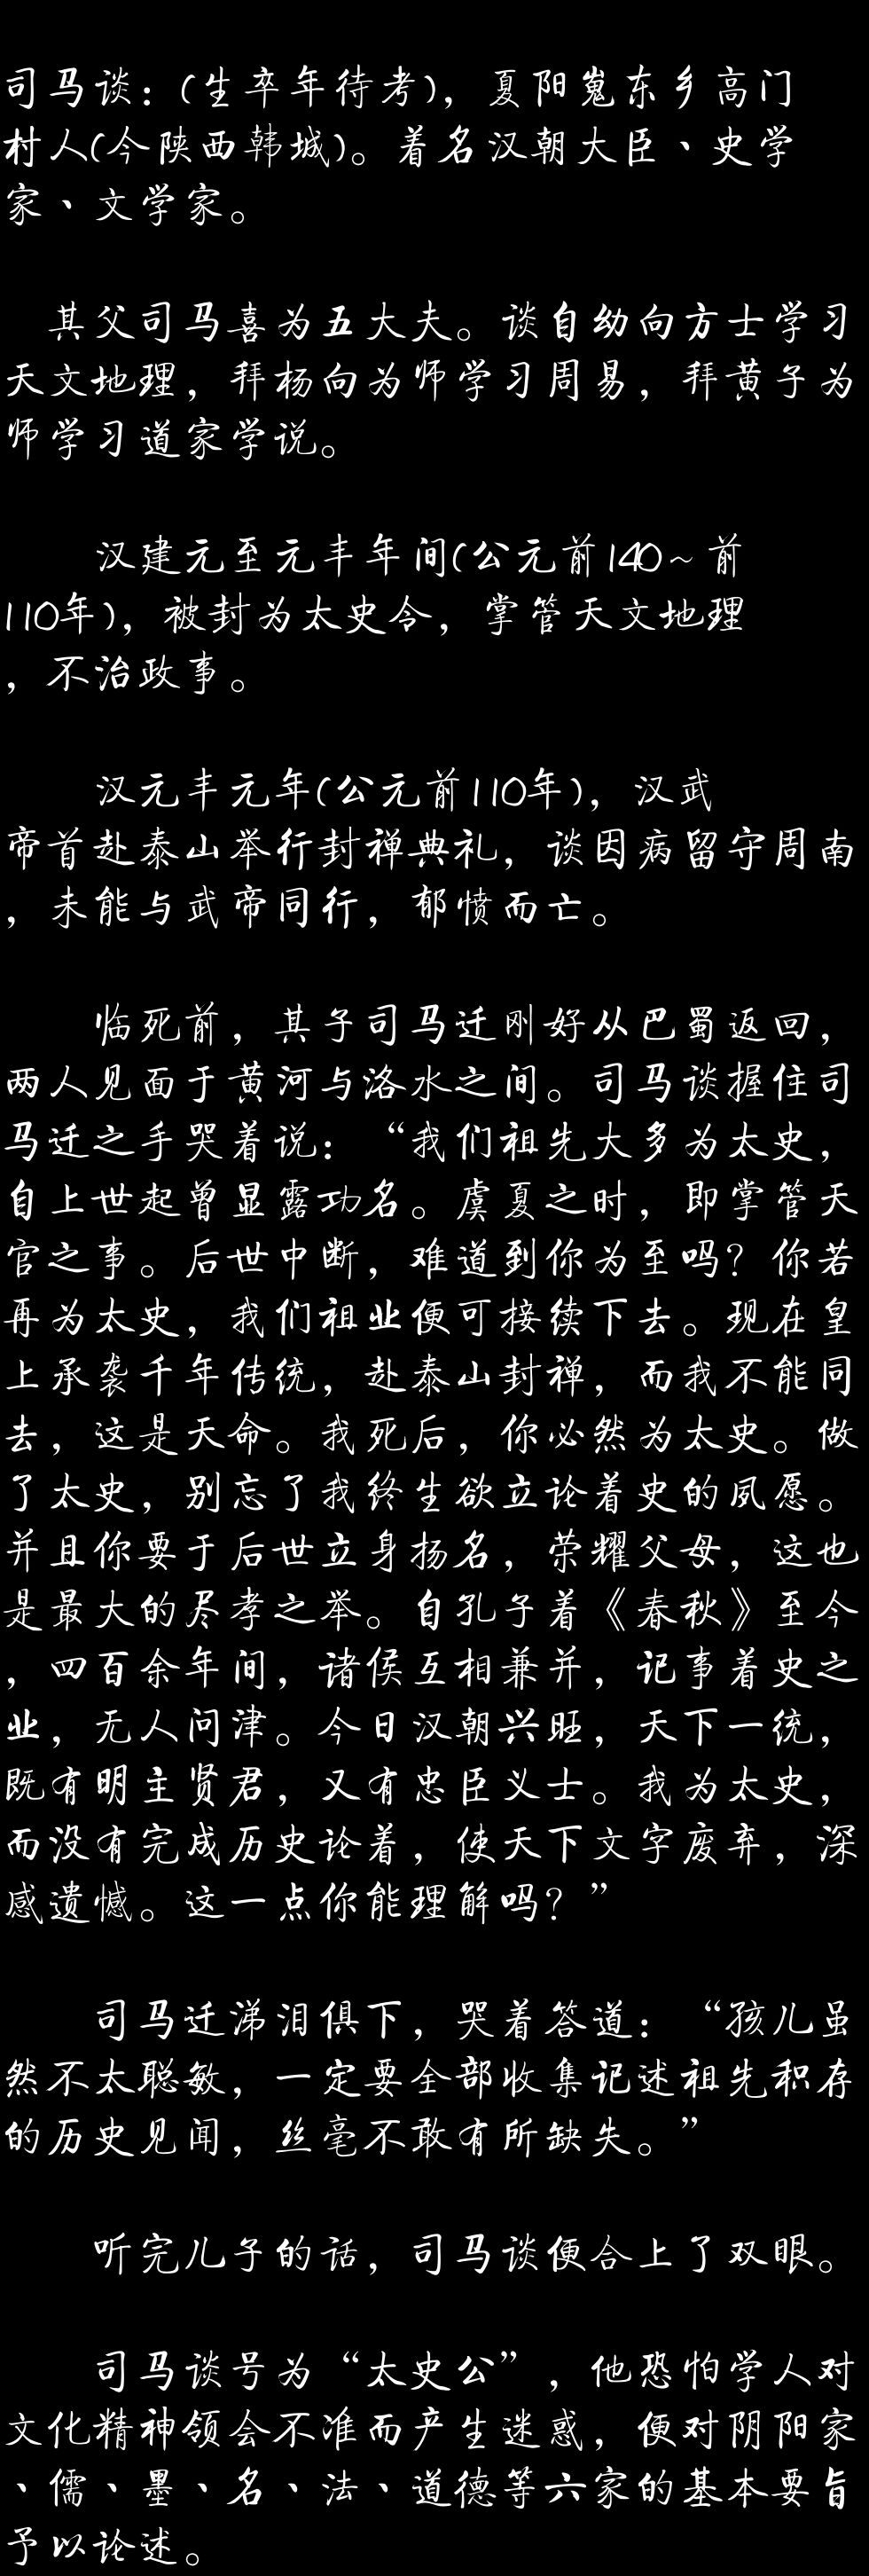 司马谈：(生卒年待考)，夏阳嵬东乡高门
村人(今陕西韩城)。着名汉朝大臣、史学
家、文学家。
其父司马喜为五大夫。谈自幼向方士学习
天文地理，拜杨向为师学习周易，拜黄子为
师学习道家学说。
汉建元至元丰年间(公元前140~前
110年)，被封为太史令，掌管天文地理
，不治政事。
汉元丰元年(公元前110年)，汉武
帝首赴泰山举行封禅典礼，谈因病留守周南
，未能与武帝同行，郁愤而亡。
临死前，其子司马迁刚好从巴蜀返回，
两人见面于黄河与洛水之间。司马谈握住司
马迁之手哭着说：“我们祖先大多为太史，
自上世起曾显露功名。虞夏之时，即掌管天
官之事。后世中断，难道到你为至吗？你若
再为太史，我们祖业便可接续下去。现在皇
上承袭千年传统，赴泰山封禅，而我不能同
去，这是天命。我死后，你必然为太史。做
了太史，别忘了我终生欲立论着史的夙愿。
并且你要于后世立身扬名，荣耀父母，这也
是最大的尽孝之举。自孔子着《春秋》至今
，四百余年间，诸侯互相兼并，记事着史之
业，无人问津。今日汉朝兴旺，天下一统，
既有明主贤君，又有忠臣义士。我为太史，
而没有完成历史论着，使天下文字废弃，深
感遗憾。这一点你能理解吗？”
司马迁涕泪俱下，哭着答道：“孩儿虽
然不太聪敏，一定要全部收集记述祖先积存
的历史见闻，丝毫不敢有所缺失。”
听完儿子的话，司马谈便合上了双眼。
司马谈号为“太史公”，他恐怕学人对
文化精神领会不准而产生迷惑，便对阴阳家
、儒、墨、名、法、道德等六家的基本要旨
予以论述。